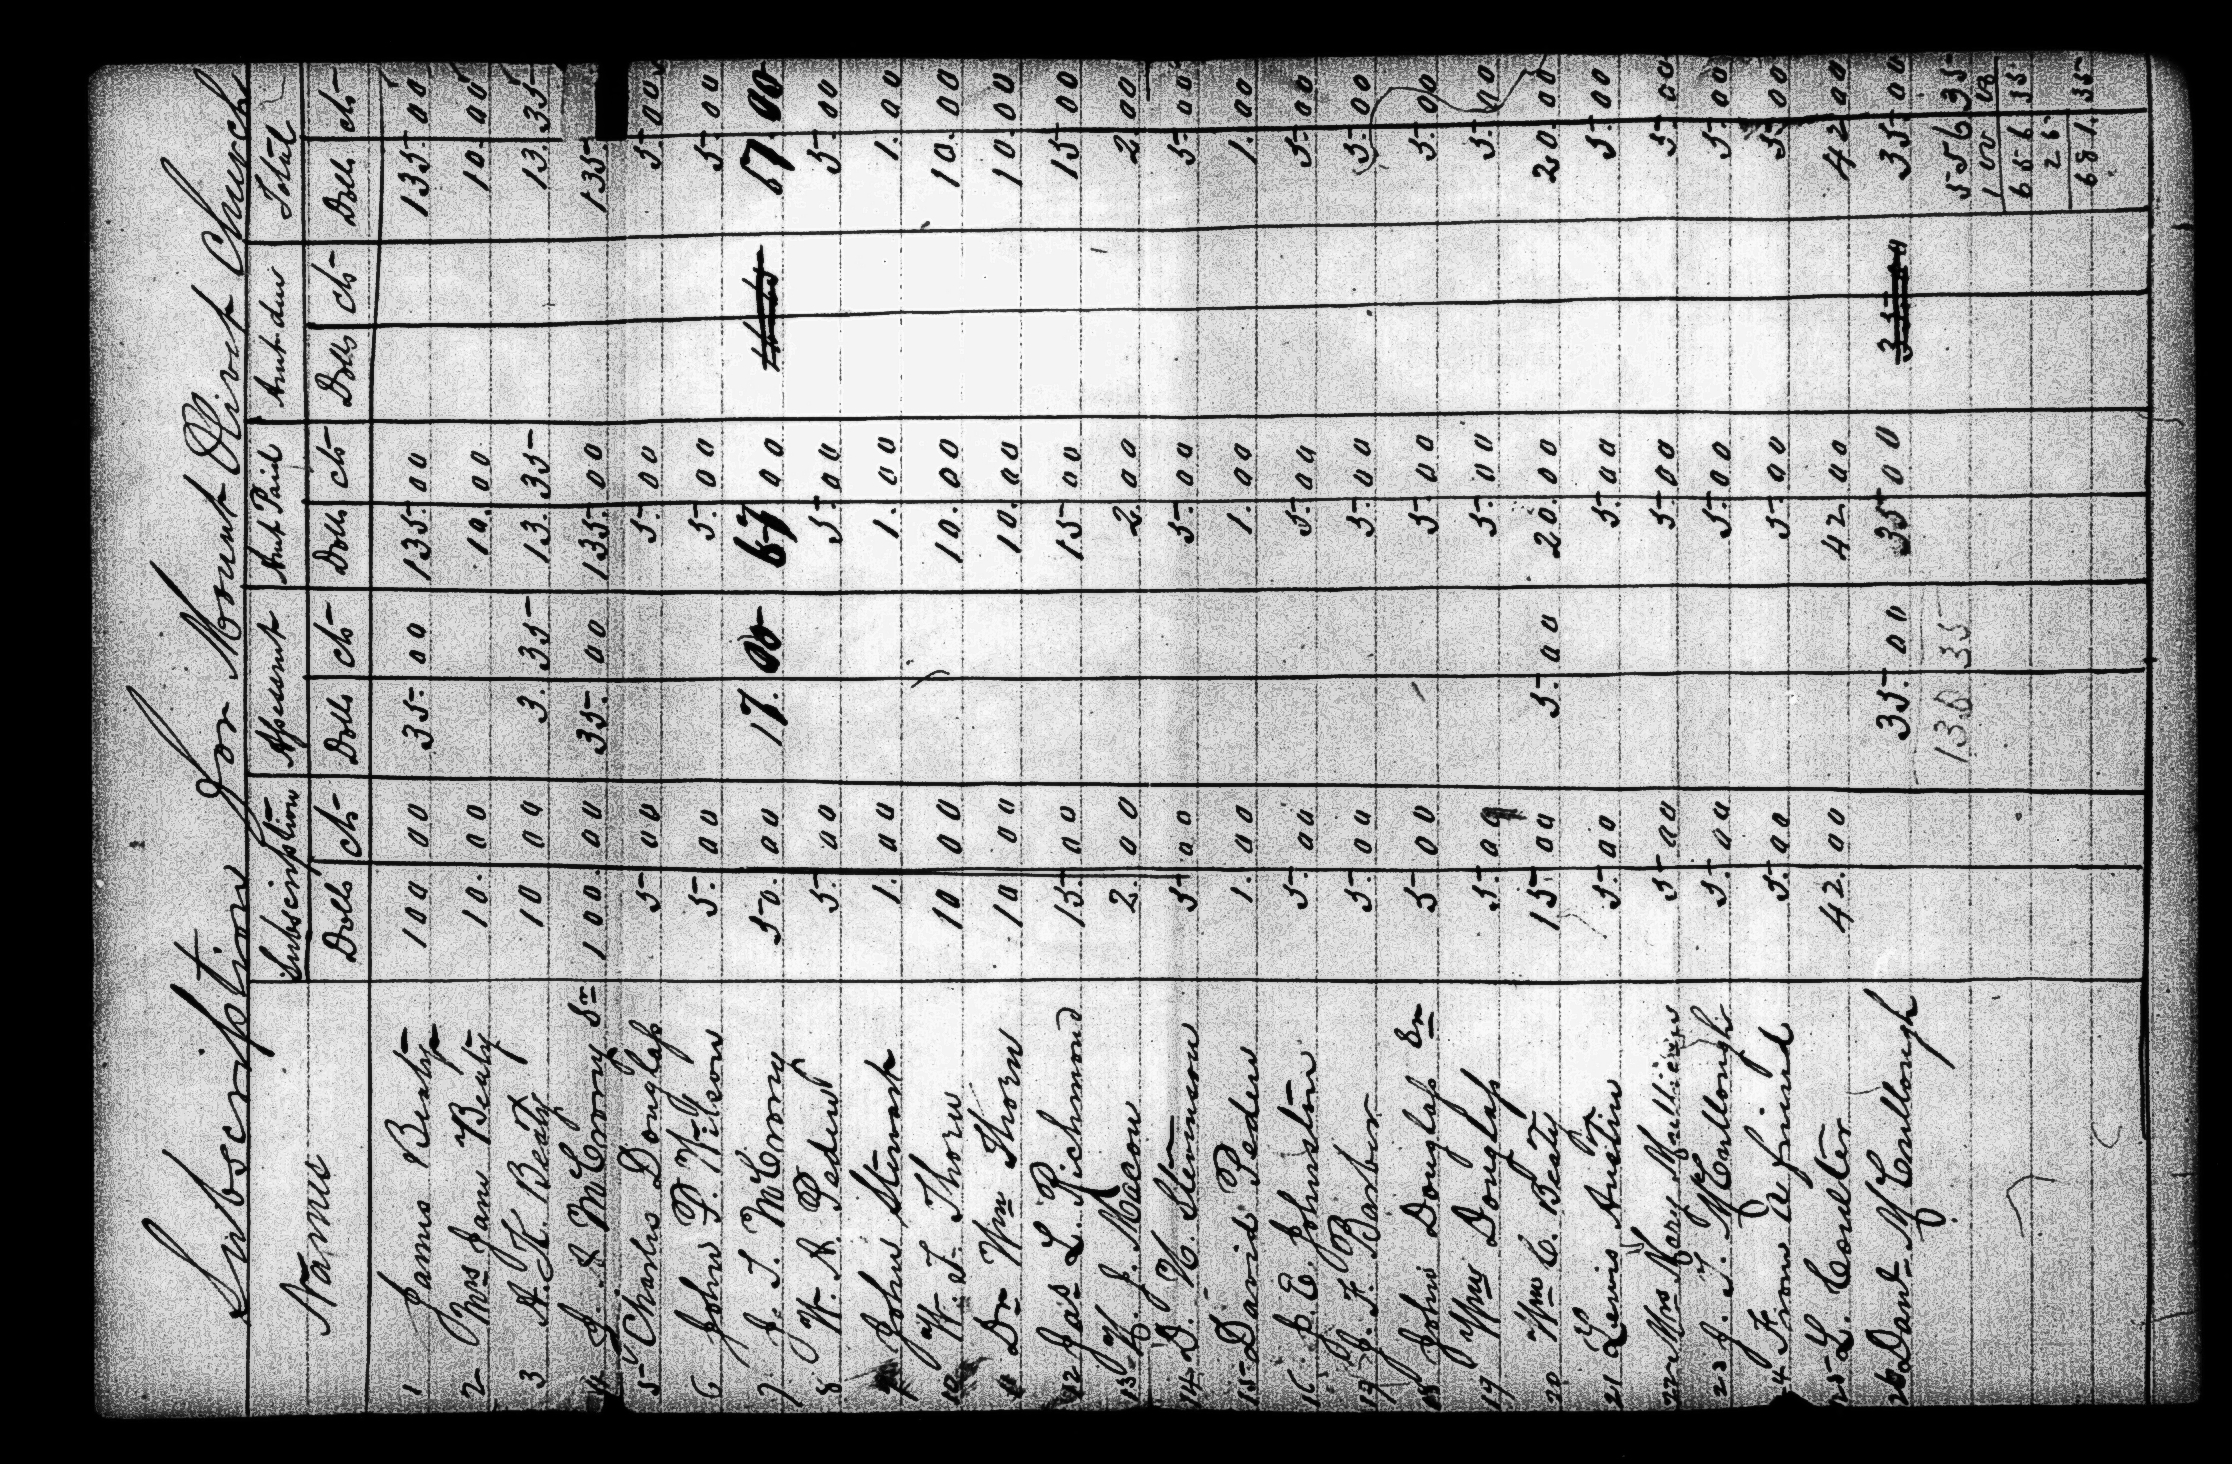 Subscription for Mount Olivet Church
Name Subscription Assesment Amt Paid Amt due Total
Dolls cts Dolls cts Dolls cts Dolls cts Dolls cts
1 James Beaty 100 00 35. 00 135. 00 135. 00
2 Mrs Jane Beaty 10. 00 10. 00 10. 00
3 A. K. Beaty 10 00 3. 35 13. 35 13. 35
4 J. A McCrory Sr 100. 00 35. 00 135. 00 135.
5 Charles Douglass 5 00 5. 00 5. 00
6 John P. Wilson 5. 00 5. 00 5. 00
7 J. T. McCrory 50. 00 17. 00 67 00 67. 00
8 W. A. Peden 5. 00 5. 00 5. 00
9 John Stewart 1. 00 1. 00 1. 00
10 W. T. Thorn 10 00 10. 00 10. 00
11 Dr Wm Thorn 10 00 10. 00 10. 00
12 Jas L. Richmond 15. 00 15 00 15 00
13 W. J. Macon 2. 00 2. 00 2. 00
14 D. H. Stevenson 5 00 5. 00 5. 00
15 David Peden 1. 00 1. 00 1. 00
16 J. E. Johnston 5. 00 5. 00 5. 00
17 J. F. Barber 5. 00 5. 00 5. 00
18 John Douglass Sr 5 00 5. 00 5. 00
19 Wm Douglass 5. 00 5. 00 5. 00
20 Wm C. Beaty 15 00 5. 00 20. 00 20. 00
21 Lewis Austin 5. 00 5. 00 5. 00
22 Mrs Mary 5. 00 5. 00 5. 00
23 J. T. McCullough 5. 00 5. 00 5. 00
24 From a friend 5. 00 5. 00 5. 00
25 L. Coulter 42. 00 42 00 42 00
26 Danl McCullough 35. 00 35 00 35. 00
138 35 556 35
100 00
656 35
25
681. 35